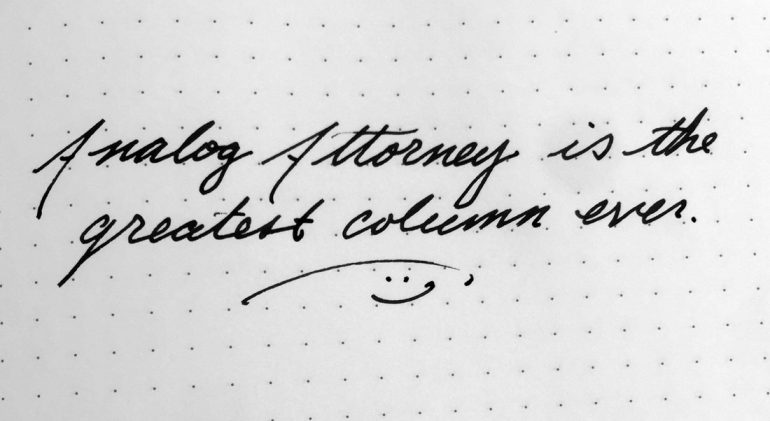 Analog Attorney is the
greatest column ever.